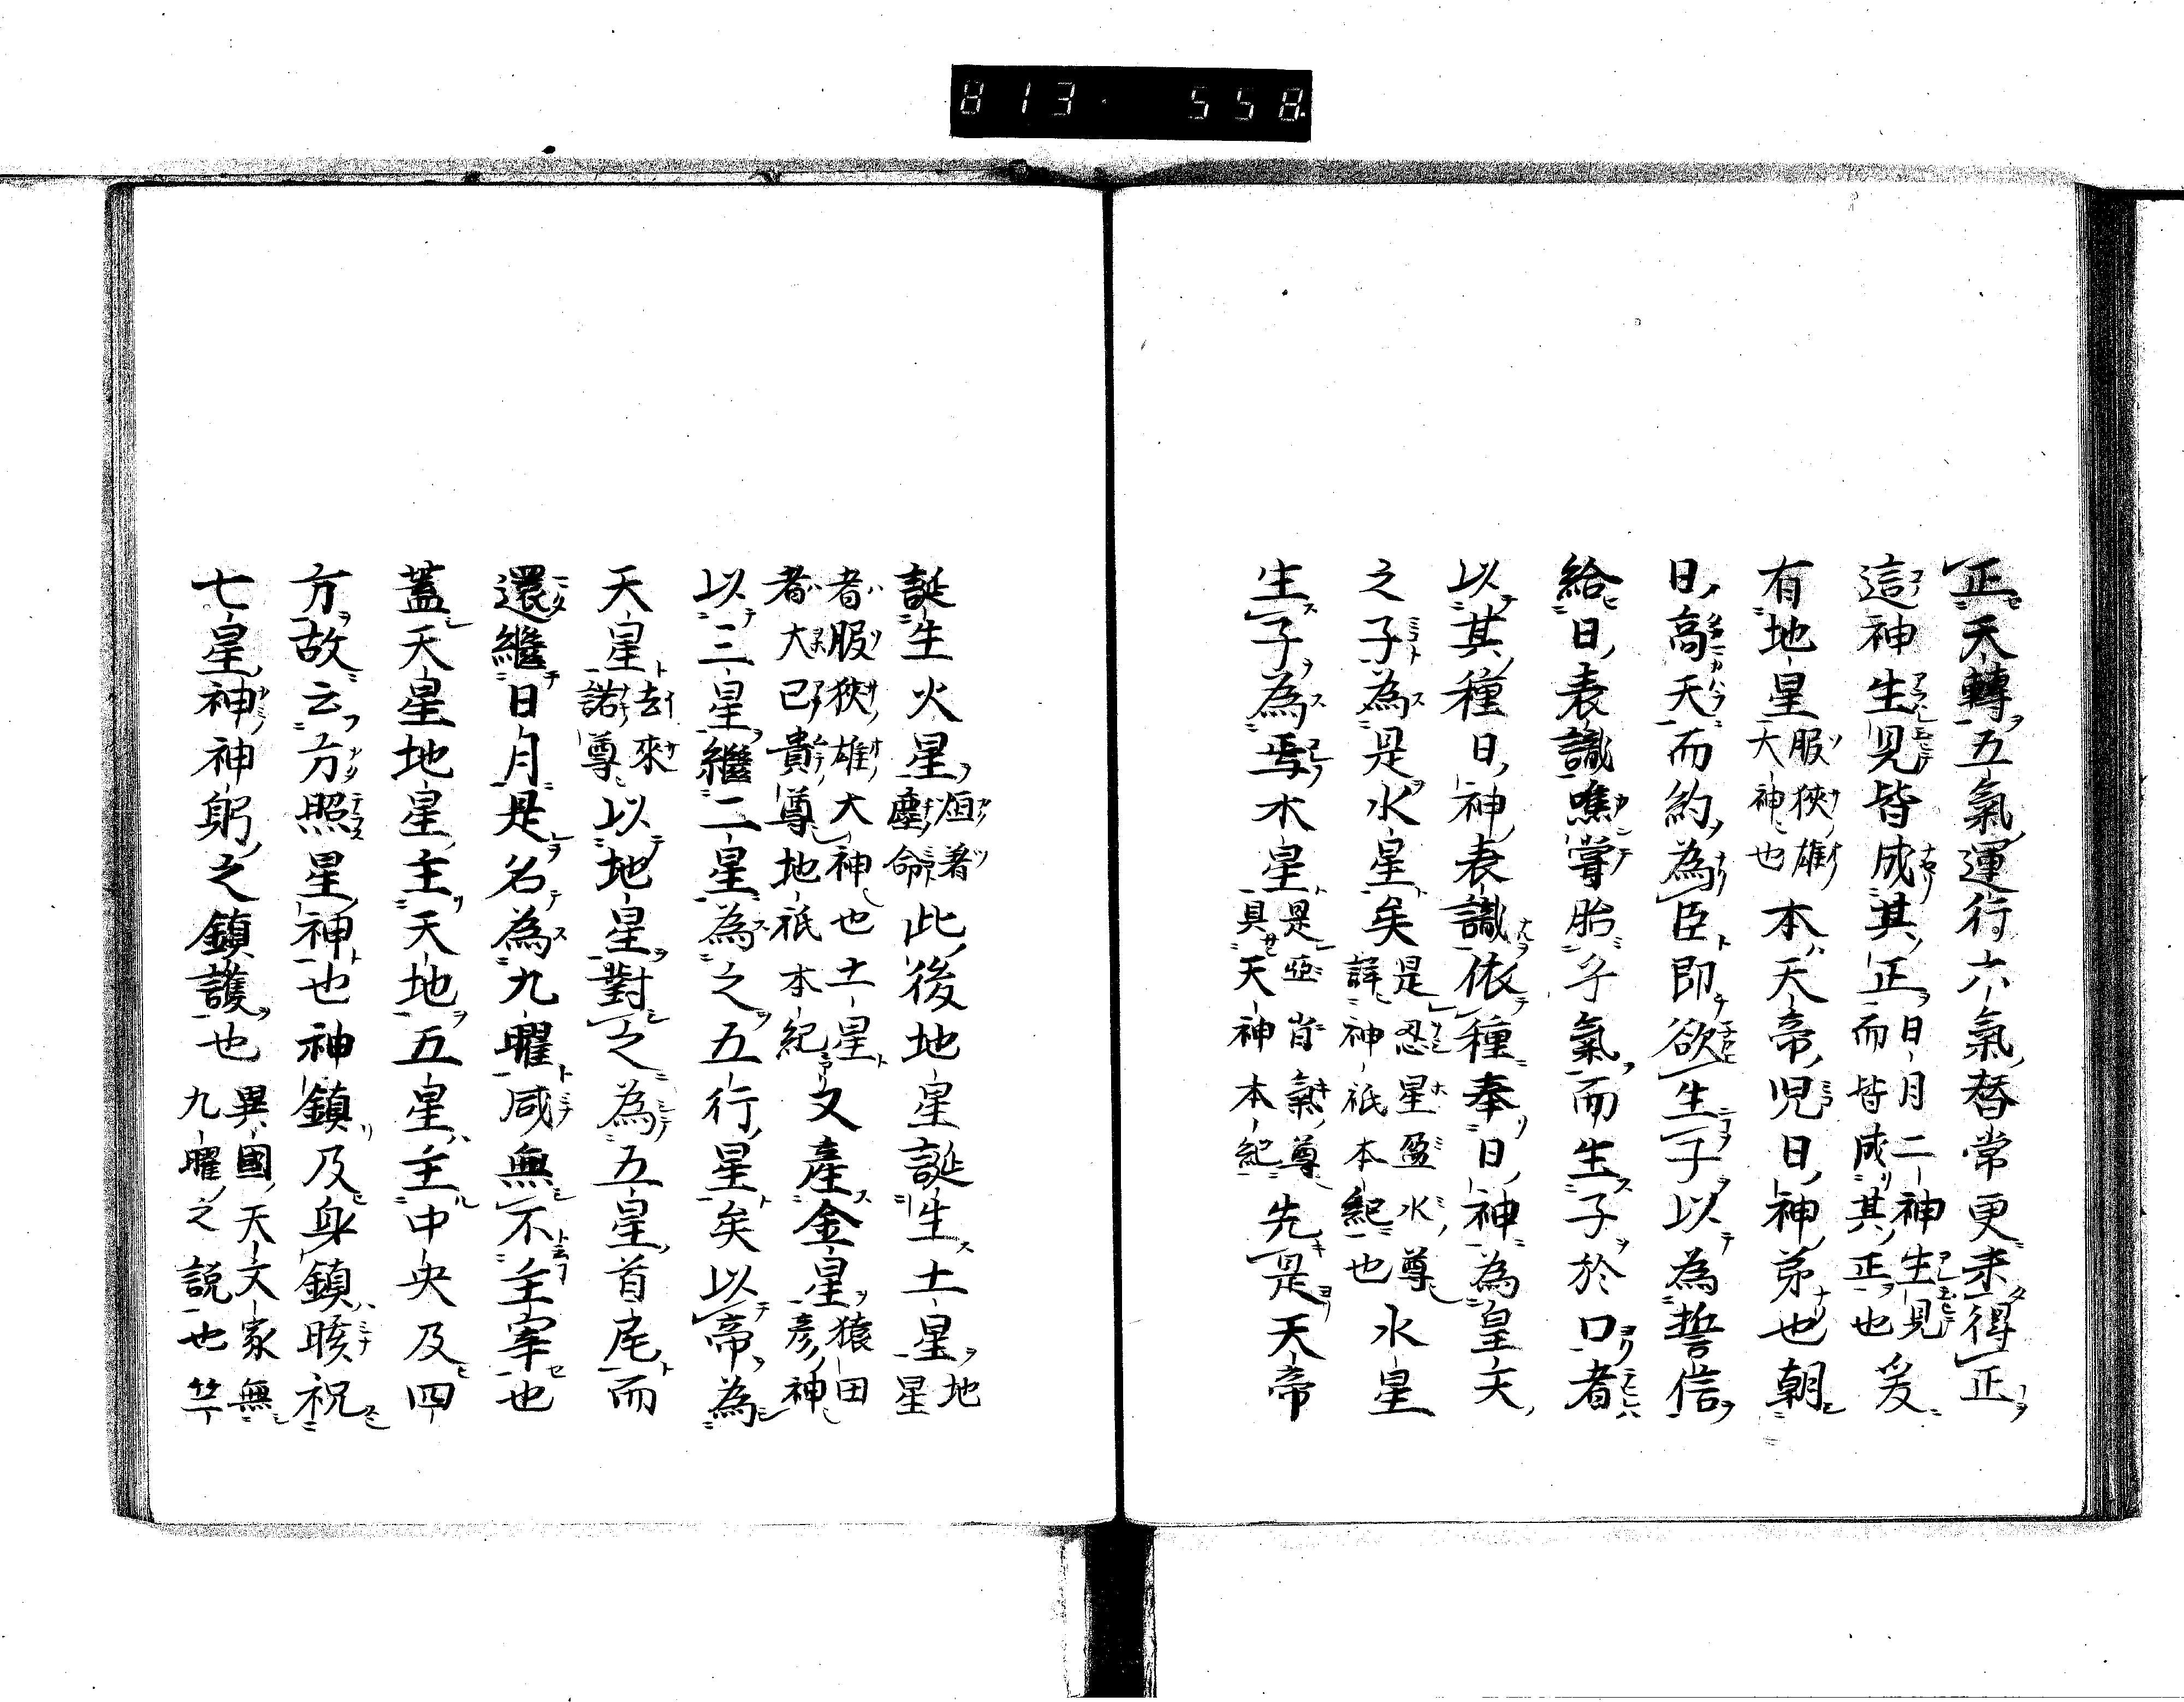 813 558
正天轉五氣運行六氣替常更未得正
這神生見皆成其正日月二神生見而皆成其正也爰
有地星服狹雄大神也本天帝児日神弟也朝
日高天而約為臣即欲生子以為誓信
給日表識噍嘗胎子氣而生子於口者
以其種日神表識依種奉日神為皇天
之子為是水星矣是忍星盈水尊詳神祇本紀也水星
生子為焉木星是亟背氣尊具天神本紀先是天帝
誕生火星烜著塵命此後地星誕生土星地星
者服狹雄大神也土星者大已貴尊地祇本紀又產金星猿田彥神
以三星繼二星為之五行星矣以帝為
天星去來諾尊以地星對之為五星首尾而
還繼日月是名為九曜咸無不主宰也
蓋天星地星主天地五星主中央及四
方故云方照星神也神鎮及身鎮晐祝
七星神神躬之鎮護也異國天文家無九曜之說也竺